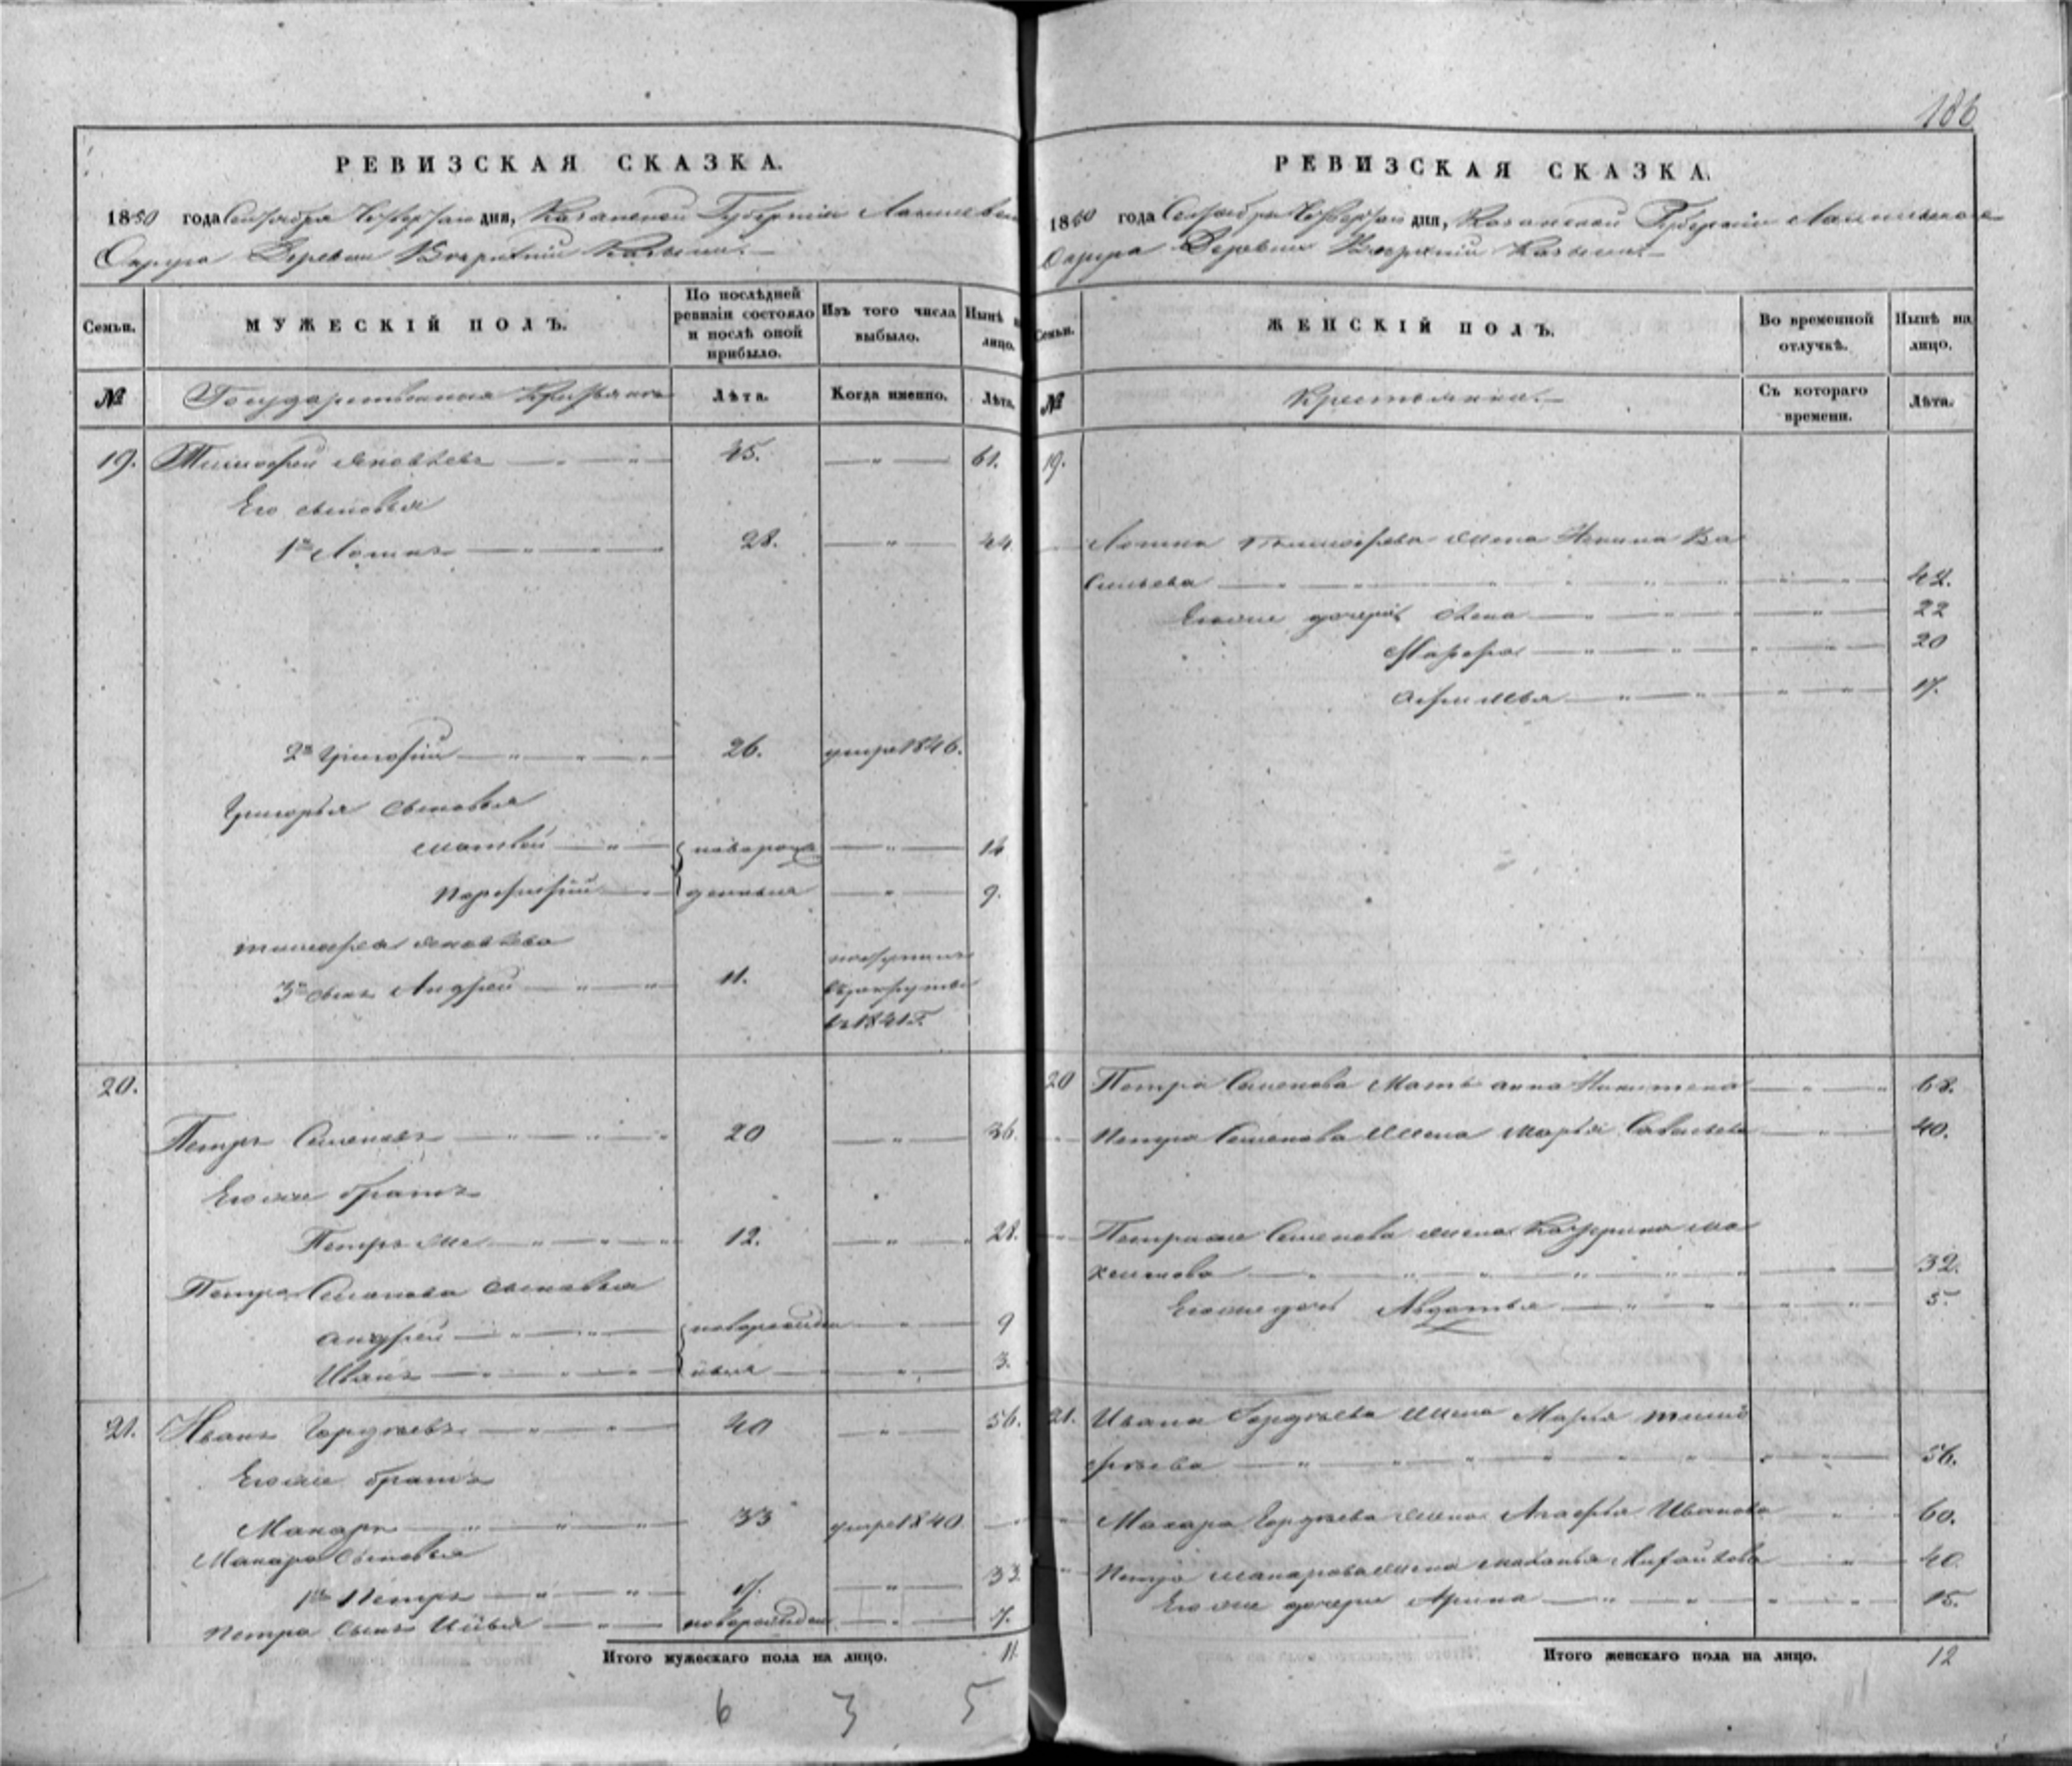 РЕВИЗСКАЯ СКАЗКА.
1850 года Сентября Четвертаго дня, Казанской Губерніи
Округа Деревни Казыли.
Семьи.
МУЖЕСКІЙ ПОЛЪ.
По послѣдней ревизіи состояло и послѣ оной прибыло.
Изъ того числа выбыло.
Нынѣ на лицо.
№
Государственные Крестьяне
Лѣта.
Когда именно.
Лѣта.
19. Тимофей Яковлевъ 45. 61.
Его сыновья
1й Логинъ 28. 44
2й Григорій 26. умре 1846.
Григорья сыновья
Матвей новорож 14
Порфирій денные 9.
Тимофея Яковлева
3й сынъ Андрей 11. поступилъ
въ рекруты
въ 1841 г.
20.
Петръ Семеновъ 20 36.
Его же братъ
Петръ же 12. 28.
Петра Семенова сыновья
Андрей новорожден 9
Иванъ ные 3.
21. Иванъ Гордѣевъ 40 56.
Его же братъ
Макаръ 33 умре 1840
Макара сыновья
1й Петръ 17. 33
Петра сынъ новорожден 7.
Итого мужескаго пола на лицо. 11.
6 3 5
186
РЕВИЗСКАЯ СКАЗКА.
1850 года Сентября Четвертаго дня, Казанской Губерніи
Округа Деревни Казыли.
Семьи.
ЖЕНСКІЙ ПОЛЪ.
Во временной отлучкѣ.
Нынѣ на лицо.
№
Крестьянки.
Съ котораго времени.
Лѣта.
19.
Логина Тимофеева жена Ва
сильева 42.
Его же дочери 22
Марфа 20
17.
20 Петра Семенова мать Анна Никитина 68.
Петра Семенова жена Марья Савельева 40.
Петра же Семенова жена Катерина Ма
ксимова 32.
Его же дочь Авдотья 5.
21. Ивана Гордѣева жена Марья Тимо
фѣева 56.
Макара Гордѣева жена Агафья Иванова 60.
Петра Макарова жена Маланья Михайлова 40.
Его же дочери Арина 15.
Итого женскаго пола на лицо. 12